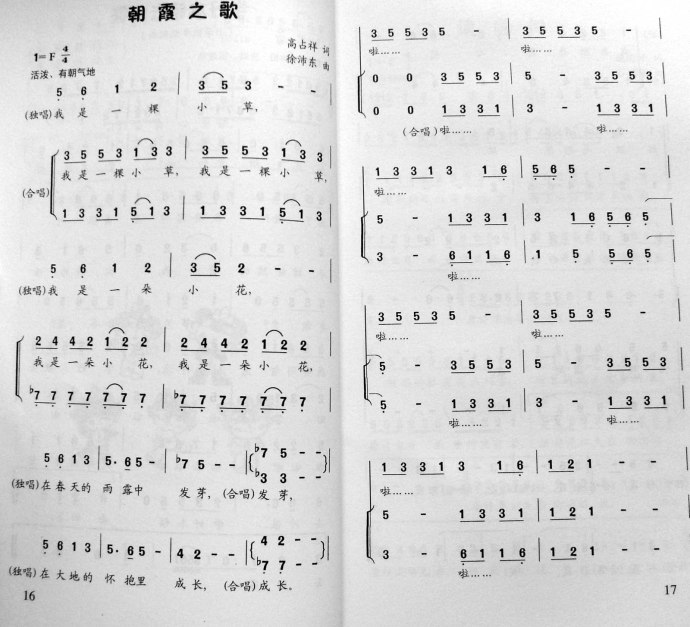 朝霞之歌
1=F 4/4
高占祥 词
徐沛东 曲
活泼、有朝气地
5 6 1 2 | 3 5 3 - - |
(独唱)我是一棵小草,
3 5 5 3 1 3 3 | 3 5 5 3 1 3 3 |
我是一棵小草,我是一棵小草,
(合唱)
1 3 3 1 5 1 3 | 1 3 3 1 5 1 3 |
5 6 1 2 | 3 5 2 - - |
(独唱)我是一朵小花,
2 4 4 2 1 2 2 | 2 4 4 2 1 2 2 |
我是一朵小花, 我是一朵小花,
♭7 7 7 7 7 7 7 | 7 7 7 7 7 7 7 |
5 6 1 3 | 5· 6 5 - | ♭7 5 - - | ♭7 5 - - |
♭3 3 - -
(独唱)在春天的雨露中 发芽,(合唱)发芽,
5 6 1 3 | 5· 6 5 - | 4 2 - - | 4 2 - - |
♭7 7 - -
(独唱)在大地的怀抱里 成长,(合唱)成长。
16
3 5 5 3 5 5 - | 3 5 5 3 5 - |
啦…… 啦……
0 0 3 5 5 3 | 5 - 3 5 5 3 |
0 0 1 3 3 1 | 3 - 1 3 3 1 |
(合唱)啦…… 啦……
1 3 3 1 3 1 6 | 5 6 5 - |
啦……
5 - 1 3 3 1 | 3 1 6 5 6 5 |
3 - 6 1 1 6 | 1 5 5 6 5 |
啦……
3 5 5 3 5 - | 3 5 5 3 5 - |
啦…… 啦……
5 - 3 5 5 3 | 5 3 5 5 3 |
5 - 1 3 3 1 | 3 - 1 3 3 1 |
啦…… 啦……
1 3 3 1 3 1 6 | 1 2 1 - - |
啦……
5 - 1 3 3 1 | 5 1 2 1 |
3 - 6 1 1 6 | 1 2 1 |
啦……
17